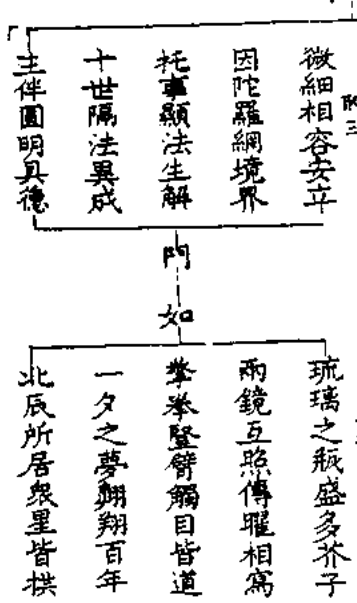 微細相容安立
因陀羅網境界
托事顯法生解
十世隔法異成
主伴圓明具德
門
如
琉璃之瓶盛多芥子
兩鏡互照傳曜相寫
擎拳豎臂觸目皆道
一夕之夢翱翔百年
北辰所居眾星皆拱